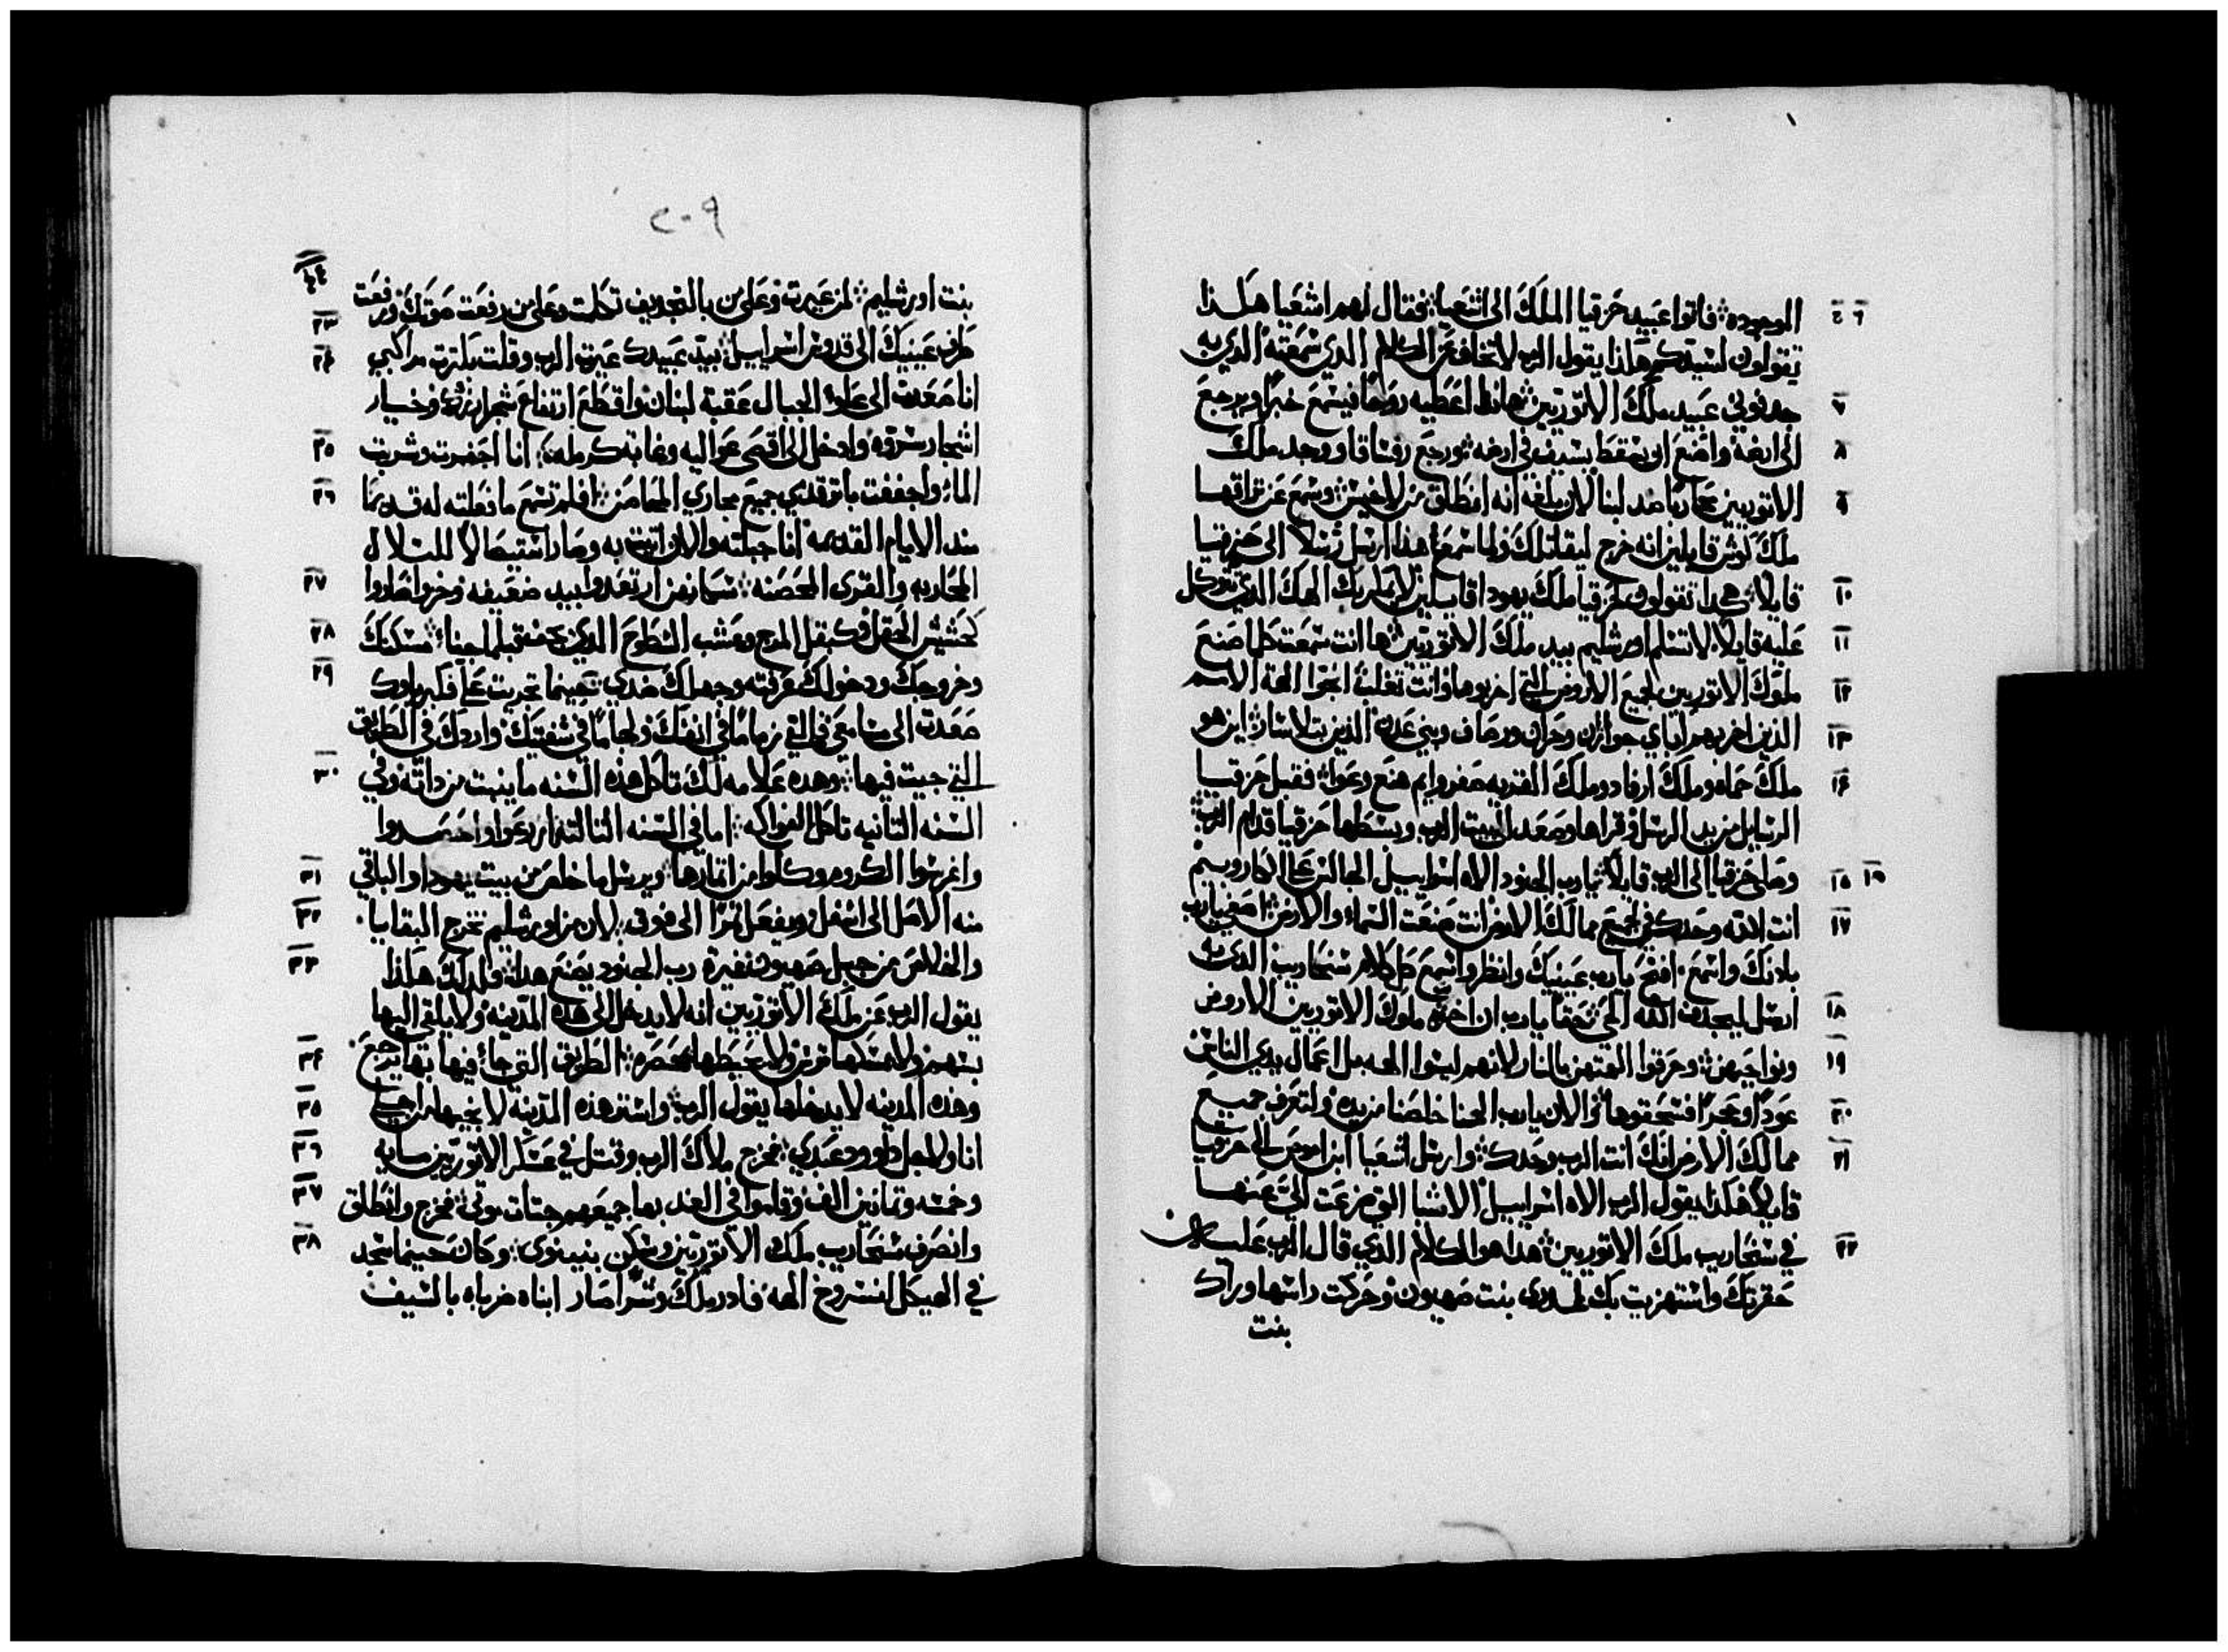 الموجوده فاتوا عبيد حزقيا الملك الى اشعيا فقال لهم اشعيا هكذا
تقولون لسيدكم هكذا يقول الرب لا تخاف من الكلام الذي سمعته الذي به
جدفوني عبيد ملك الاتوريين هانذا اعطيه روحًا فيسمع خبرًا ويرجع
الى ارضه واصنع ان يسقط بسيف في ارضه ورجع رفساقا ووجد ملك
الاتوريين محاربًا ضد لبنا لان بلغه انه انطلق من لاخيش وسمع عن تراقها
ملك كوش قايلين انه خرج ليقاتلك ولما سمع هذا ارسل رسلًا الى حزقيا
قايلًا هكذا تقولون لحزقيا ملك يهودا قايلين لا يطربك الهك الذي تتوكل
عليه قايلًا لا تسلم اورشليم بيد ملك الاتوريين ها انت سمعت كلما صنع
ملوك الاتوريين لجميع الاروض التي اخربوها وانت تفلت انجوا الهة الامم
الذين اخربهم اباي جوازن وحران ورصاف وبني عدن الذين بتلاسار اين هو
ملك حماه وملك ارفاد وملك القريه صفروايم هنع وعوا فقبل حزقيا
الرسايل من يد الرسل وقراها وصعد الى بيت الرب وبسطها حزقيا قدام الرب
وصلى حزقيا الى الرب قايلًا يا رب الجنود الاه اسراييل الجالس على الكاروبيم
انت الاله وحدك في جميع ممالك الارض انت صنعت السماء والارض اصغ يارب
باذنك واسمع افتح يارب عينيك وانظر واسمع كل كلام سنحاريب الذي
ارسل ليجدف الله الحي حقًا يارب ان اخربوا ملوك الاتوريين الاروض
ونواحيهن وحرقوا الهتهن بالنار لانهم ليسوا الهه بل اعمال يدي الناس
عودًا وحجرًا فسحقوها والان يارب الهنا خلصنا من يده ولتعرف جميع
ممالك الارض انك انت الرب وحدك وارسل اشعيا ابن اموص الى حزقيا
قايلًا هكذا يقول الرب الاه اسراييل الاشيا التي تضرعت الي عنها
في سنحاريب ملك الاتوريين هذا هو الكلام الذي قال الرب عليه
حقرتك واستهزيت بك بنت صهيون وحركت راسها وراك
بنت
٢٠٩
بنت اورشليم لمن عيرت وعلى من بالتجديف تكلمت وعلى من رفعت صوتك ورفعت
طرف عينيك الى قدوس اسراييل بيد عبيدك عيرت الرب وقلت بكثرت مراكبي
انا صعدت الى علو الجبال عقبة لبنان واقطع ارتفاع شجر ارزه وخيار
اشجار سروه وادخل الى اقصى عواليه وغابة كرمله انا احفرت وشربت
الماء واجففت باثر قدمي جميع مجاري افلم تسمع ما فعلته له قديمًا
منذ الايام القديمه انا جبلته والان اتيت به وصار استيصالًا للتلال
المحاربه والقرى المحصنه سكانهن ارتعدوا بيد ضعيفه وخزوا صاروا
كحشيش الحقل وكبقل المرج وعشب السطوح الذي جف قبلما مسكنك
وخروجك ودخولك عرفته وجهلك ضدي حينما تجريت علي فكبرياوك
صعدت الى مسامعي فالقي زمامًا في انفك ولجامًا في شفتيك واردك في الطريق
التي جيت فيها وهذه علامه لك تاكل هذه السنه ما ينبت من ذاته وفي
السنه الثانيه تاكل الفواكه اما في السنه الثالثه ازرعوا واحصدوا
واغرسوا الكروم وكلوا من اثمارها ويرسل ما خلص من بيت يهودا والباقي
منه الاصل الى اسفل ويفعل ثمرًا الى فوق لان من اورشليم تخرج البقايا
والخلاص من جبل صهيون غيرة رب الجنود يصنع هذا ولذلك هكذا
يقول الرب عن ملك الاتوريين انه لا يدخل الى هذه المدينه ولا يلقي اليها
بسهم ولا يمسكها ترس ولا يحيطها بمحصره الطريق التي جاء فيها بها يرجع
وهذه المدينه لا يدخلها يقول الرب واستر هذه المدينه لانجيها من اجلي
انا ولاجل داوود عبدي فخرج ملاك الرب وقتل في عسكر الاتوريين مايه
وخمسه وثمانين الف وقاموا في الغد بها جميعهم جثات موتى فخرج وانطلق
وانصرف سنحاريب ملك الاتوريين وسكن بنينوى وكان حينما سجد
في الهيكل لنسروخ الهه فادرملك وشراصار ابناه ضرباه بالسيف